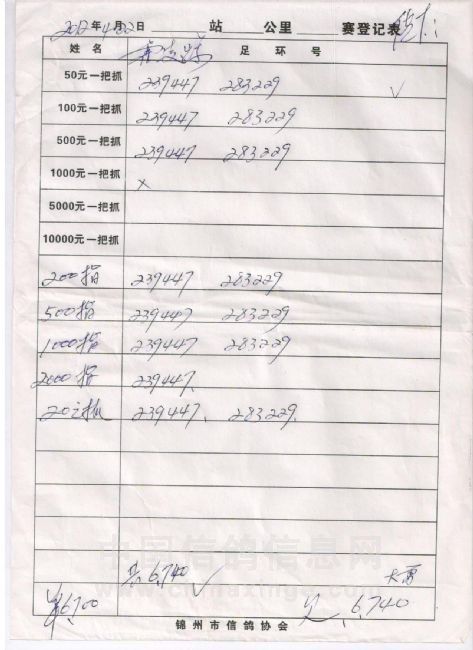 2012年4月22日 站 公里 赛登记表
姓名 足环号
50元一把抓 239447 283229 ✓
100元一把抓 239447 283229
500元一把抓 239447 283229
1000元一把抓 ×
5000元一把抓
10000元一把抓
200指 239447 283229
500指 239447 283229
1000指 239447 283229
2000指 239447
20元抓 239447 283229
中国信鸽信息网
共6740 ✓
6700 6,740
锦州市信鸽协会